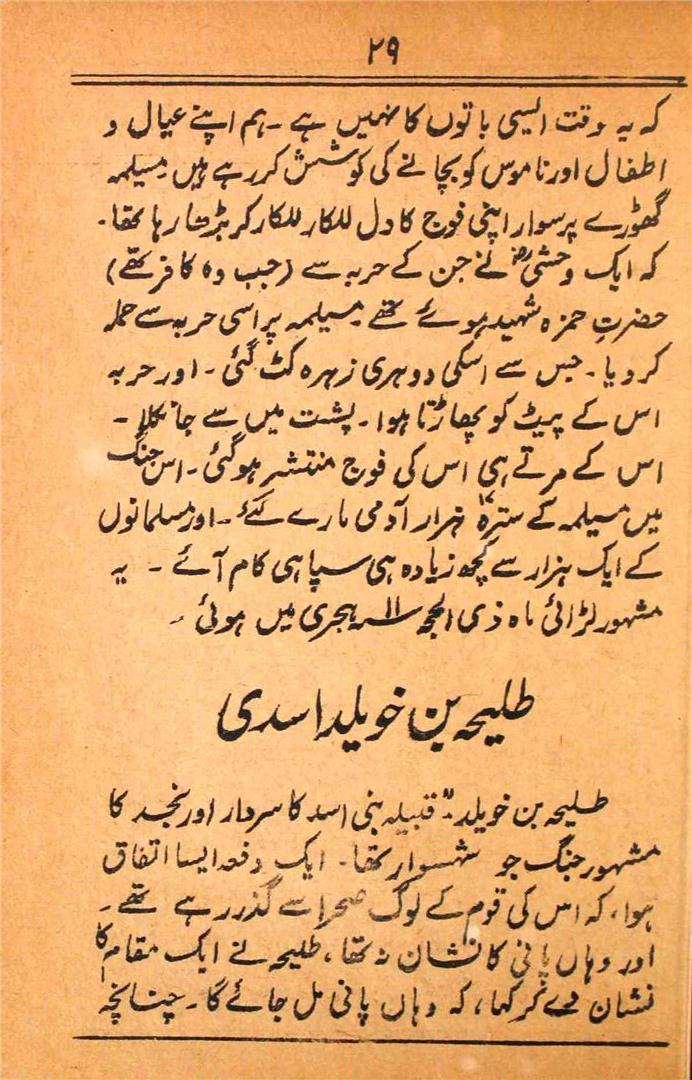 ۲۹
کہ یہ وقت ایسی باتوں کا نہیں ہے ۔ ہم اپنے عیال و
اطفال اور ناموس کو بچانے کی کوشش کر رہے ہیں مسیلمہ
گھوڑے پر سوار اپنی فوج کا دل للکار للکار کر بڑھا رہا تھا۔
کہ ایک وحشیؓ نے جن کے حربہ سے (جب وہ کافر تھے)
حضرتِ حمزہ شہید ہوئے تھے مسیلمہ پر اسی حربہ سے حملہ
کر دیا ۔ جس سے اسکی دوہری زہرہ کٹ گئی ۔ اور حربہ
اس کے پیٹ کو پھاڑتا ہوا ۔ پشت میں سے جا نکلا ۔
اس کے مرتے ہی اس کی فوج منتشر ہو گئی ۔ اس جنگ
میں مسیلمہ کے سترہ ۱۷ ہزار آدمی مارے گئے ۔ اور مسلمانوں
کے ایک ہزار سے کچھ زیادہ ہی سپاہی کام آئے ۔ یہ
مشہور لڑائی ماہ ذی الحجہ ۱۱؁ ہجری میں ہوئی ۔
طلیحہ بن خویلد اسدی
طلیحہ بن خویلد ۔ قبیلہ بنی اسد کا سردار اور نجد کا
مشہور جنگ جو شہسوار تھا ۔ ایک دفعہ ایسا اتفاق
ہوا، کہ اس کی قوم کے لوگ صحرا سے گذر رہے تھے ۔
اور وہاں پانی کا نشان نہ تھا، طلیحہ نے ایک مقام کا
نشان دے کر کہا، کہ وہاں پانی مل جائے گا ۔ چنانچہ